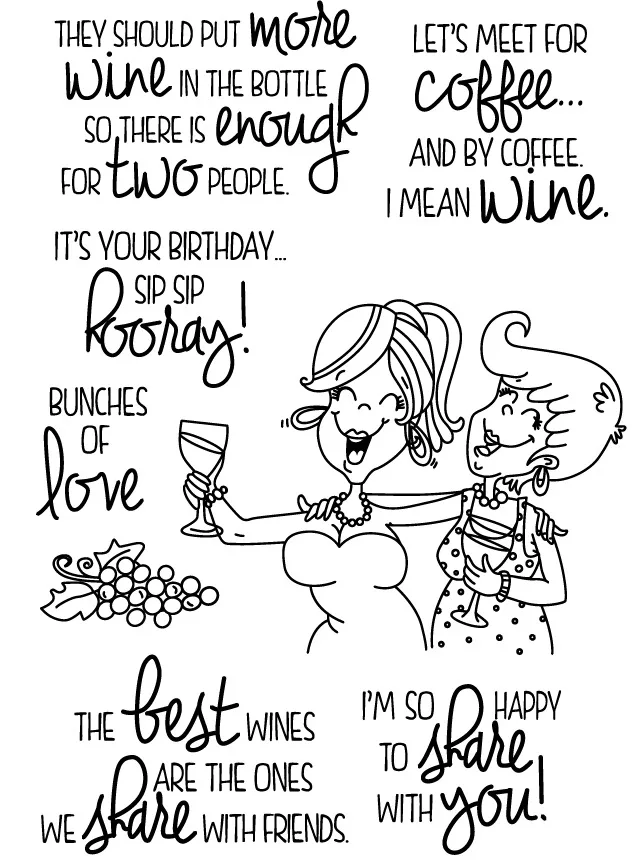 THEY SHOULD PUT more
wine IN THE BOTTLE
SO THERE IS enough
FOR two PEOPLE.
LET'S MEET FOR
coffee...
AND BY COFFEE.
I MEAN wine.
IT'S YOUR BIRTHDAY...
SIP SIP
hooray!
BUNCHES
OF
love
THE best WINES
ARE THE ONES
WE share WITH FRIENDS.
I'M SO HAPPY
TO share
WITH you!